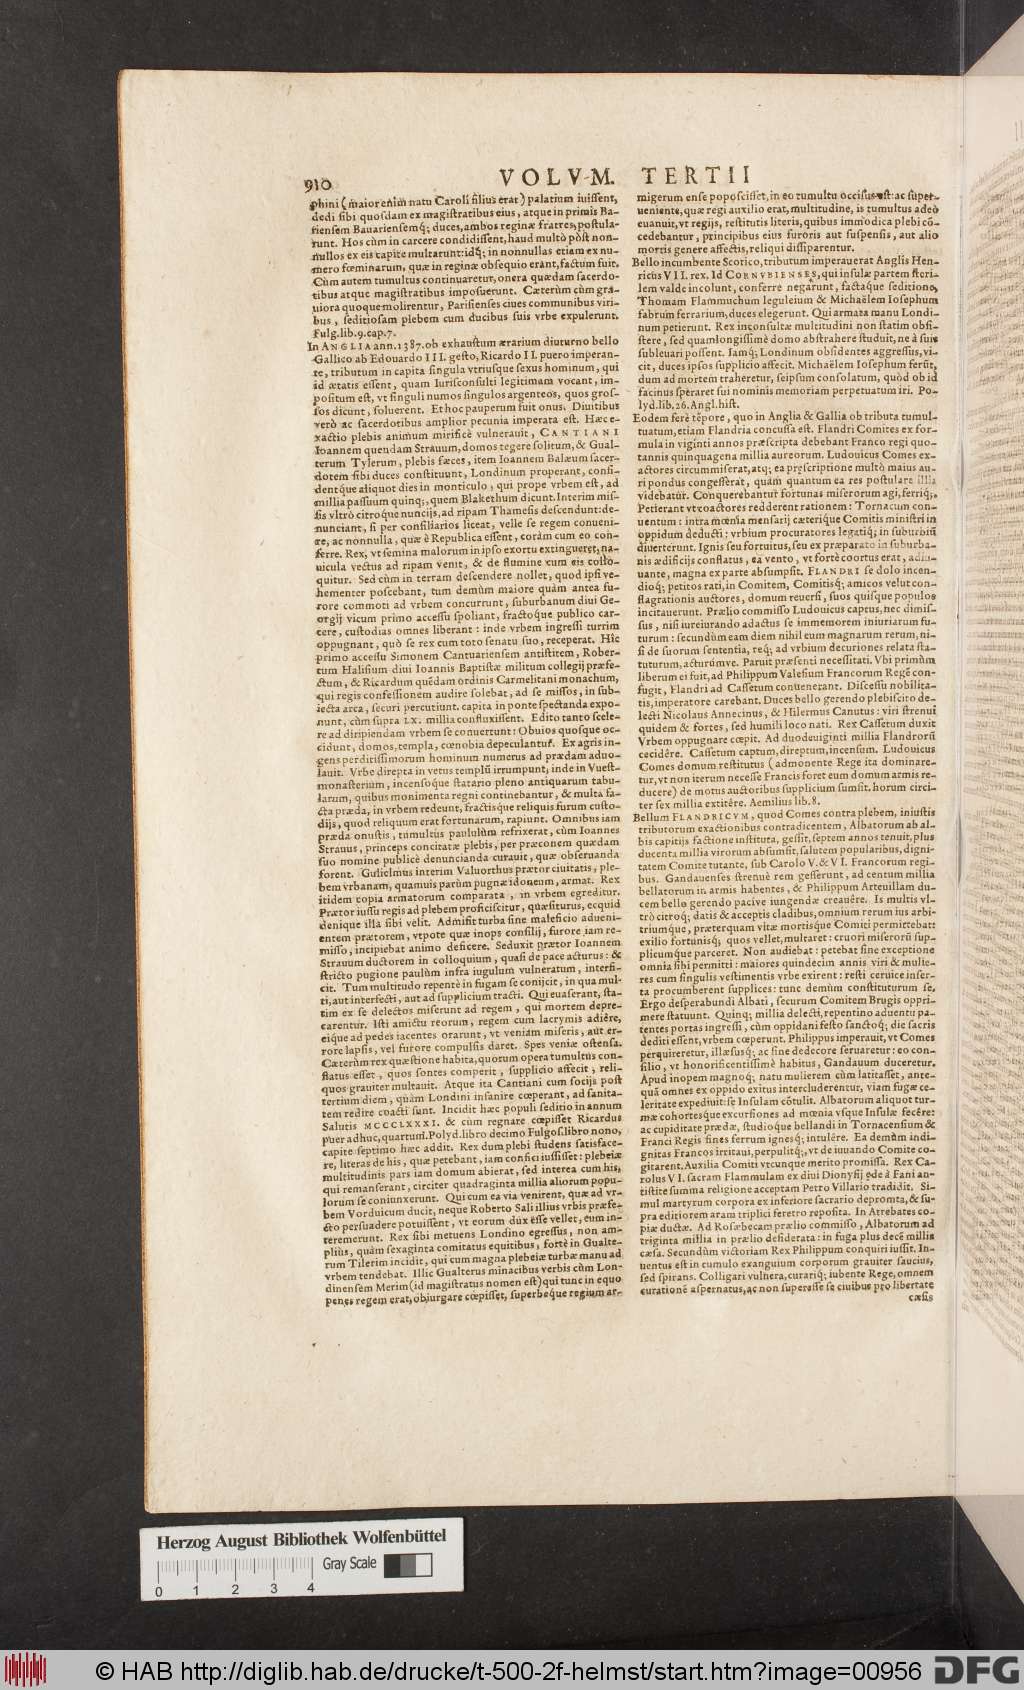 910
VOLVM. TERTII
phini (maior enim natu Caroli filius erat) palatium iuissent,
dedi sibi quosdam ex magistratibus eius, atque in primis Ba-
riensem Bavariensemq́; duces, ambos reginæ fratres, postula-
runt. Hos cùm in carcere condidissent, haud multò pòst non-
nullos ex eis capite multarunt: idq́; in nonnullas etiam ex nu-
mero fœminarum, quæ in reginæ obsequio erant, factum fuit.
Cùm autem tumultus continuaretur, onera quædam sacerdo-
tibus atque magistratibus imposuerunt. Cæterùm cùm gra-
uiora quoque molirentur, Parisienses ciues communibus viri-
bus, seditiosam plebem cum ducibus suis vrbe expulerunt.
Fulg. lib. 9. cap. 7.
In ANGLIA ann. 1387. ob exhaustum ærarium diuturno bello
Gallico ab Edouardo III. gesto, Ricardo II. puero imperan-
te, tributum in capita singula vtriusque sexus hominum, qui
id ætatis essent, quam Iurisconsulti legitimam vocant, im-
positum est, vt singuli numos singulos argenteos, quos gros-
sos dicunt, soluerent. Et hoc pauperum fuit onus. Diuitibus
verò ac sacerdotibus amplior pecunia imperata est. Hæc e-
xactio plebis animum mirificè vulnerauit, CANTIANI
Ioannem quendam Strauum, domos tegere solitum, & Gual-
terum Tylerum, plebis fæces, item Ioannem Balæum sacer-
dotem sibi duces constituunt, Londinum properant, consi-
dentque aliquot dies in monticulo, qui prope vrbem est, ad
millia passuum quinq;, quem Blakethum dicunt. Interim mis-
sis vltrò citroque nuncijs, ad ripam Thamesis descendunt: de-
nunciant, si per consiliarios liceat, velle se regem conueni-
re, ac nonnulla, quæ è Republica essent, coràm cum eo con-
ferre. Rex, vt semina malorum in ipso exortu extingueret, na-
uicula vectus ad ripam venit, & de flumine cum eis collo-
quitur. Sed cùm in terram descendere nollet, quod ipsi ve-
hementer poscebant, tum demùm maiore quàm antea fu-
rore commoti ad vrbem concurrunt, suburbanum diui Ge-
orgij vicum primo accessu spoliant, fractoque publico car-
cere, custodias omnes liberant: inde vrbem ingressi turrim
oppugnant, quò se rex cum toto senatu suo, receperat. Hîc
primo accessu Simonem Cantuariensem antistitem, Rober-
tum Halisium diui Ioannis Baptistæ militum collegij præfe-
ctum, & Ricardum quēdam ordinis Carmelitani monachum,
qui regis confessionem audire solebat, ad se missos, in sub-
iecta arca, securi percutiunt. capita in ponte spectanda expo-
nunt, cùm supra LX. millia confluxissent. Edito tanto scele-
re ad diripiendam vrbem se conuertunt: Obuios quosque oc-
cidunt, domos, templa, cœnobia depeculantur. Ex agris in-
gens perditissimorum hominum numerus ad prædam aduo-
lauit. Vrbe direpta in vetus templū irrumpunt, inde in Vuest-
monasterium, incensoque statario pleno antiquarum tabu-
larum, quibus monimenta regni continebantur, & multa fa-
cta præda, in vrbem redeunt, fractisque reliquis furum custo-
dijs, quod reliquum erat fortunarum, rapiunt. Omnibus iam
præda onustis, tumultus paululùm refrixerat, cùm Ioannes
Strauus, princeps concitatæ plebis, per præconem quædam
suo nomine publicè denuncianda curauit, quæ obseruanda
forent. Gulielmus interim Valuorthus prætor ciuitatis, ple-
bem vrbanam, quamuis parùm pugnæ idoneum, armat. Rex
itidem copia armatorum comparata, in vrbem egreditur.
Prætor iussu regis ad plebem proficiscitur, quæsiturus, ecquid
denique illa sibi velit. Admisit turba sine maleficio adueni-
entem prætorem, vtpote quæ inops consilij, furore iam re-
misso, incipiebat animo deficere. Seduxit prætor Ioannem
Strauum ductorem in colloquium, quasi de pace acturus: &
stricto pugione paulùm infra iugulum vulneratum, interfi-
cit. Tum multitudo repentè in fugam se conijcit, in qua mul-
ti, aut interfecti, aut ad supplicium tracti. Qui euaserant, sta-
tim ex se delectos miserunt ad regem, qui mortem depre-
carentur. Isti amictu reorum, regem cum lacrymis adiêre,
eique ad pedes iacentes orarunt, vt veniam miseris, aut er-
rore lapsis, vel furore compulsis daret. Spes veniæ ostensa.
Cæterùm rex quæstione habita, quorum opera tumultus con-
flatus esset, quos sontes comperit, supplicio affecit, reli-
quos grauiter multauit. Atque ita Cantiani cum socijs post
tertium diem, quàm Londini insanire cœperant, ad sanita-
tem redire coacti sunt. Incidit hæc populi seditio in annum
Salutis MCCCLXXXI. & cùm regnare cœpisset Ricardus
puer adhuc, quartum. Polyd. libro decimo Fulgos. libro nono,
capite septimo hæc addit. Rex dum plebi studens satisface-
re, literas de his, quæ petebant, iam confici iussisset: plebeiæ
multitudinis pars iam domum abierat, sed interea cum his,
qui remanserant, circiter quadraginta millia aliorum popu-
lorum se coniunxerunt. Qui cum ea via venirent, quæ ad vr-
bem Vorduicum ducit, neque Roberto Sali illius vrbis præfe-
cto persuadere potuissent, vt eorum dux esse vellet, eum in-
teremerunt. Rex sibi metuens Londino egressus, non am-
pliùs, quàm sexaginta comitatus equitibus, fortè in Gualte-
rum Tilerim incidit, qui cum magna plebeiæ turbæ manu ad
vrbem tendebat. Illic Gualterus minacibus verbis cùm Lon-
dinensem Merim (id magistratus nomen est) qui tunc in equo
penes regem erat, obiurgare cœpisset, superbeque regium ar-
migerum ense poposcisset, in eo tumultu occisus est: ac super-
ueniente, quæ regi auxilio erat, multitudine, is tumultus adeò
euanuit, vt regijs, restitutis literis, quibus immodica plebi cō-
cedebantur, principibus eius furoris aut suspensis, aut alio
mortis genere affectis, reliqui dissiparentur.
Bello incumbente Scotico, tributum imperauerat Anglis Hen-
ricus VII. rex. Id CORNVBIENSES, qui insulæ partem steri-
lem valde incolunt, conferre negarunt, factaque seditione,
Thomam Flammuchum leguleium & Michaëlem Iosephum
fabrum ferrarium, duces elegerunt. Qui armata manu Londi-
num petierunt. Rex inconsultæ multitudini non statim obsi-
stere, sed quamlongissimè domo abstrahere studuit, ne à suis
subleuari possent. Iamq́; Londinum obsidentes aggressus, vi-
cit, duces ipsos supplicio affecit. Michaëlem Iosephum ferūt,
dum ad mortem traheretur, seipsum consolatum, quòd ob id
facinus speraret sui nominis memoriam perpetuatum iri. Po-
lyd. lib. 26. Angl. hist.
Eodem ferè tēpore, quo in Anglia & Gallia ob tributa tumul-
tuatum, etiam Flandria concussa est. Flandri Comites ex for-
mula in viginti annos præscripta debebant Franco regi quo-
tannis quinquagena millia aureorum. Ludouicus Comes ex-
actores circummiserat, atq; ea præscriptione multò maius au-
ri pondus congesserat, quàm quantum ea res postulare illa
videbatur. Conquerebantur fortunas miserorum agi, ferriq́;.
Petierant vt coactores redderent rationem: Tornacum con-
uentum: intra mœnia mensarij cæterique Comitis ministri in
oppidum deducti: vrbium procuratores legatiq́; in suburbiū
diuerterunt. Ignis seu fortuitus, seu ex præparato in suburba-
nis ædificijs conflatus, ea vento, vt fortè coortus erat, adiu-
uante, magna ex parte absumpsit. FLANDRI se dolo incen-
dioq́; petitos rati, in Comitem, Comitisq́; amicos velut con-
flagrationis auctores, domum reuersi, suos quisque populos
incitauerunt. Prælio commisso Ludouicus captus, nec dimis-
sus, nisi iureiurando adactus se immemorem iniuriarum fu-
turum: secundùm eam diem nihil eum magnarum rerum, ni-
si de suorum sententia, req́; ad vrbium decuriones relata sta-
tuturum, acturúmve. Paruit præsenti necessitati. Vbi primùm
liberum ei fuit, ad Philippum Valesium Francorum Regē con-
fugit, Flandri ad Cassetum conuenerant. Discessu nobilita-
tis, imperatore carebant. Duces bello gerendo plebiscito de-
lecti Nicolaus Annecinus, & Hilermus Canutus: viri strenui
quidem & fortes, sed humili loco nati. Rex Cassetum duxit
Vrbem oppugnare cœpit. Ad duodeuiginti millia Flandrorū
cecidêre. Cassetum captum, direptum, incensum. Ludouicus
Comes domum restitutus (admonente Rege ita dominare-
tur, vt non iterum necesse Francis foret eum domum armis re-
ducere) de motus auctoribus supplicium sumsit. horum circi-
ter sex millia extitêre. Aemilius lib. 8.
Bellum FLANDRICVM, quod Comes contra plebem, iniustis
tributorum exactionibus contradicentem, Albatorum ab al-
bis capitijs factione instituta, gessit, septem annos tenuit, plus
ducenta millia virorum absumsit, salutem popularibus, digni-
tatem Comite tutante, sub Carolo V. & VI. Francorum regi-
bus. Gandauenses strenuè rem gesserunt, ad centum millia
bellatorum in armis habentes, & Philippum Arteuillam du-
cem bello gerendo pacive iungendæ creauêre. Is multis vl-
trò citroq́; datis & acceptis cladibus, omnium rerum ius arbi-
triumque, præterquam vitæ mortisque Comiti permittebat:
exilio fortunisq́; quos vellet, multaret: cruori miserorū sup-
plicumque parceret. Non audiebat: petebat sine exceptione
omnia sibi permitti: maiores quindecim annis viri & mulie-
res cum singulis vestimentis vrbe exirent: resti ceruice inser-
ta procumberent supplices: tunc demùm constituturum se.
Ergo desperabundi Albati, securum Comitem Brugis oppri-
mere statuunt. Quinq; millia delecti, repentino aduentu pa-
tentes portas ingressi, cùm oppidani festo sanctoq́; die sacris
dediti essent, vrbem cœperunt. Philippus imperauit, vt Comes
perquireretur, illæsusq́; ac sine dedecore seruaretur: eo con-
silio, vt honorificentissimè habitus, Gandauum duceretur.
Apud inopem magnoq́; natu mulierem cùm latitasset, ante-
quā omnes ex oppido exitus intercluderentur, viam fugæ ce-
leritate expediuit: se Insulam cōtulit. Albatorum aliquot tur-
mæ cohortesque excursiones ad mœnia vsque Insulæ fecêre:
ac cupiditate prædæ, studioque bellandi in Tornacensium &
Franci Regis fines ferrum ignesq́; intulêre. Ea demùm indi-
gnitas Francos irritaui, perpulitq́;, vt de iuuando Comite co-
gitarent. Auxilia Comiti vtcunque merito promissa. Rex Ca-
rolus VI. sacram Flammulam ex diui Dionysij ęde à Fani an-
tistite summa religione acceptam Petro Villario tradidit. Si-
mul martyrum corpora ex inferiore sacrario depromta, & su-
pra editiorem aram triplici feretro reposita. In Atrebates co-
piæ ductæ. Ad Rosæbecam prælio commisso, Albatorum ad
triginta millia in prælio desiderata: in fuga plus decē millia
cæsa. Secundùm victoriam Rex Philippum conquiri iussit. In-
uentus est in cumulo exanguium corporum grauiter saucius,
sed spirans. Colligari vulnera, curariq́; iubente Rege, omnem
curationē aspernatus, ac non superesse se ciuibus pro libertate
cæsis
Herzog August Bibliothek Wolfenbüttel
Gray Scale
0 1 2 3 4
© HAB http://diglib.hab.de/drucke/t-500-2f-helmst/start.htm?image=00956
DFG